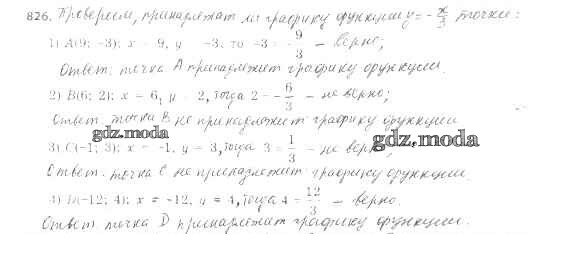 826. Проверяем, принадлежат ли графику функции y = -x/3 точки:
1) A(9; -3); x = 9, y = -3, то -3 = -9/3 – верно;
Ответ: точка A принадлежит графику функции.
2) B(6; 2); x = 6, y = 2, тогда 2 = -6/3 – не верно;
Ответ: точка B не принадлежит графику функции
gdz.moda
gdz.moda
3) C(-1; 3); x = -1, y = 3, тогда 3 = 1/3 – не верно;
Ответ: точка C не принадлежит графику функции
4) D(-12; 4); x = -12, y = 4, тогда 4 = 12/3 – верно.
Ответ точка D принадлежит графику функции.